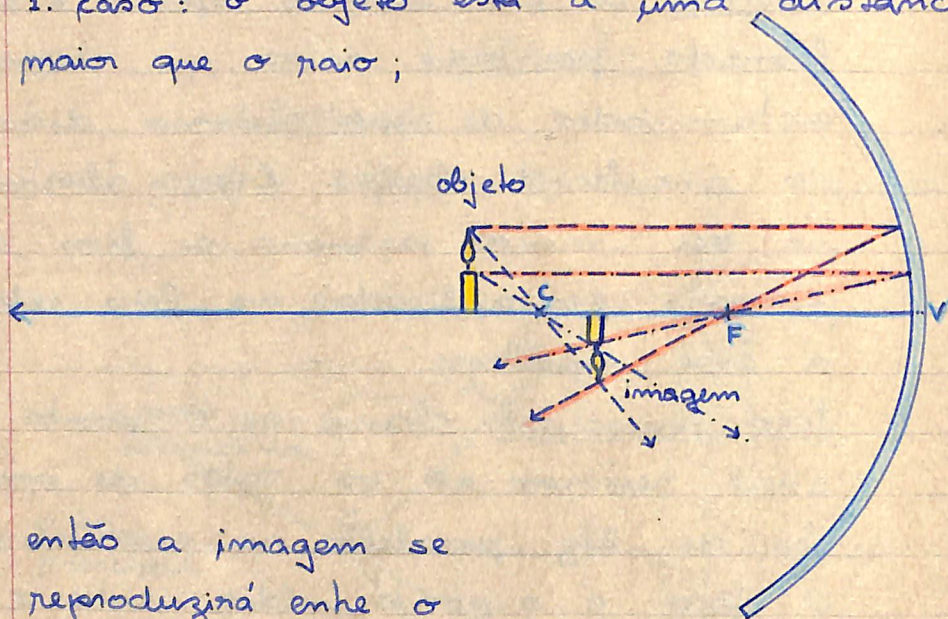 1. caso: o objeto está a uma
maior que o raio;
objeto
C
F
V
imagem
então a imagem se
reproduzirá entre o